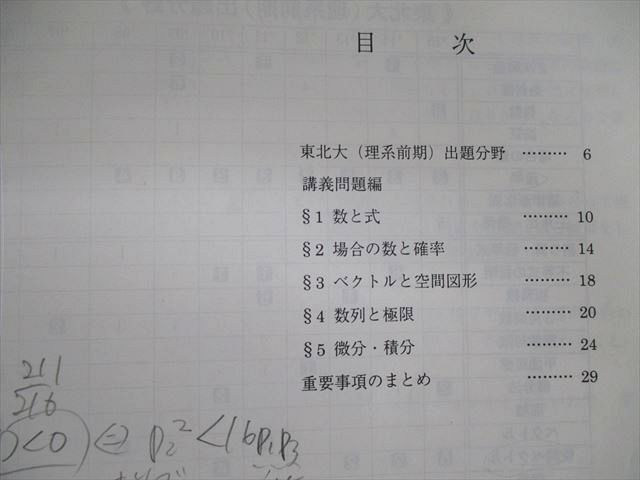 目 次
東北大(理系前期)出題分野 ……… 6
講義問題編
§1 数と式 ……… 10
§2 場合の数と確率 ……… 14
§3 ベクトルと空間図形 ……… 18
§4 数列と極限 ……… 20
§5 微分・積分 ……… 24
重要事項のまとめ ……… 29
211
216
D<0 ⇔ p₂²<16p₁p₃